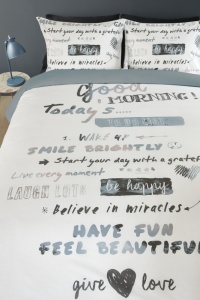 Start your day with a gratef
be happy
Believe in miracles
Start your day with a
be happy
Believe in miracles
Good
MORNING!
Today's
1. WAKE UP
SMILE BRIGHTLY
Start your day with a gratef
Live every moment
LAUGH LOTS be happy
* Believe in miracles *
HAVE FUN
FEEL BEAUTIFUL
give love